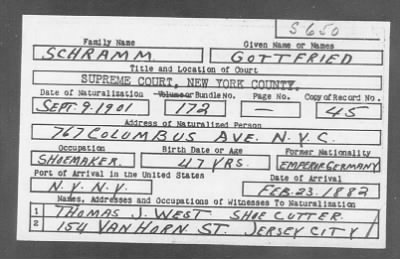 S650
Family Name Given Name or Names
SCHRAMM GOTTFRIED
Title and Location of Court
SUPREME COURT, NEW YORK COUNTY.
Date of Naturalization Volume or Bundle No. Page No. Copy of Record No.
SEPT. 9. 1901 172 — 45
Address of Naturalized Person
767 COLUMBUS AVE. N.Y.C.
Occupation Birth Date or Age Former Nationality
SHOEMAKER. 47 YRS. EMPEROR GERMANY
Port of Arrival in the United States Date of Arrival
N.Y. N.Y. FEB. 23. 1882
Names, Addresses and Occupations of Witnesses To Naturalization
1 THOMAS J. WEST SHOE CUTTER.
2 154 VAN HORN ST. JERSEY CITY